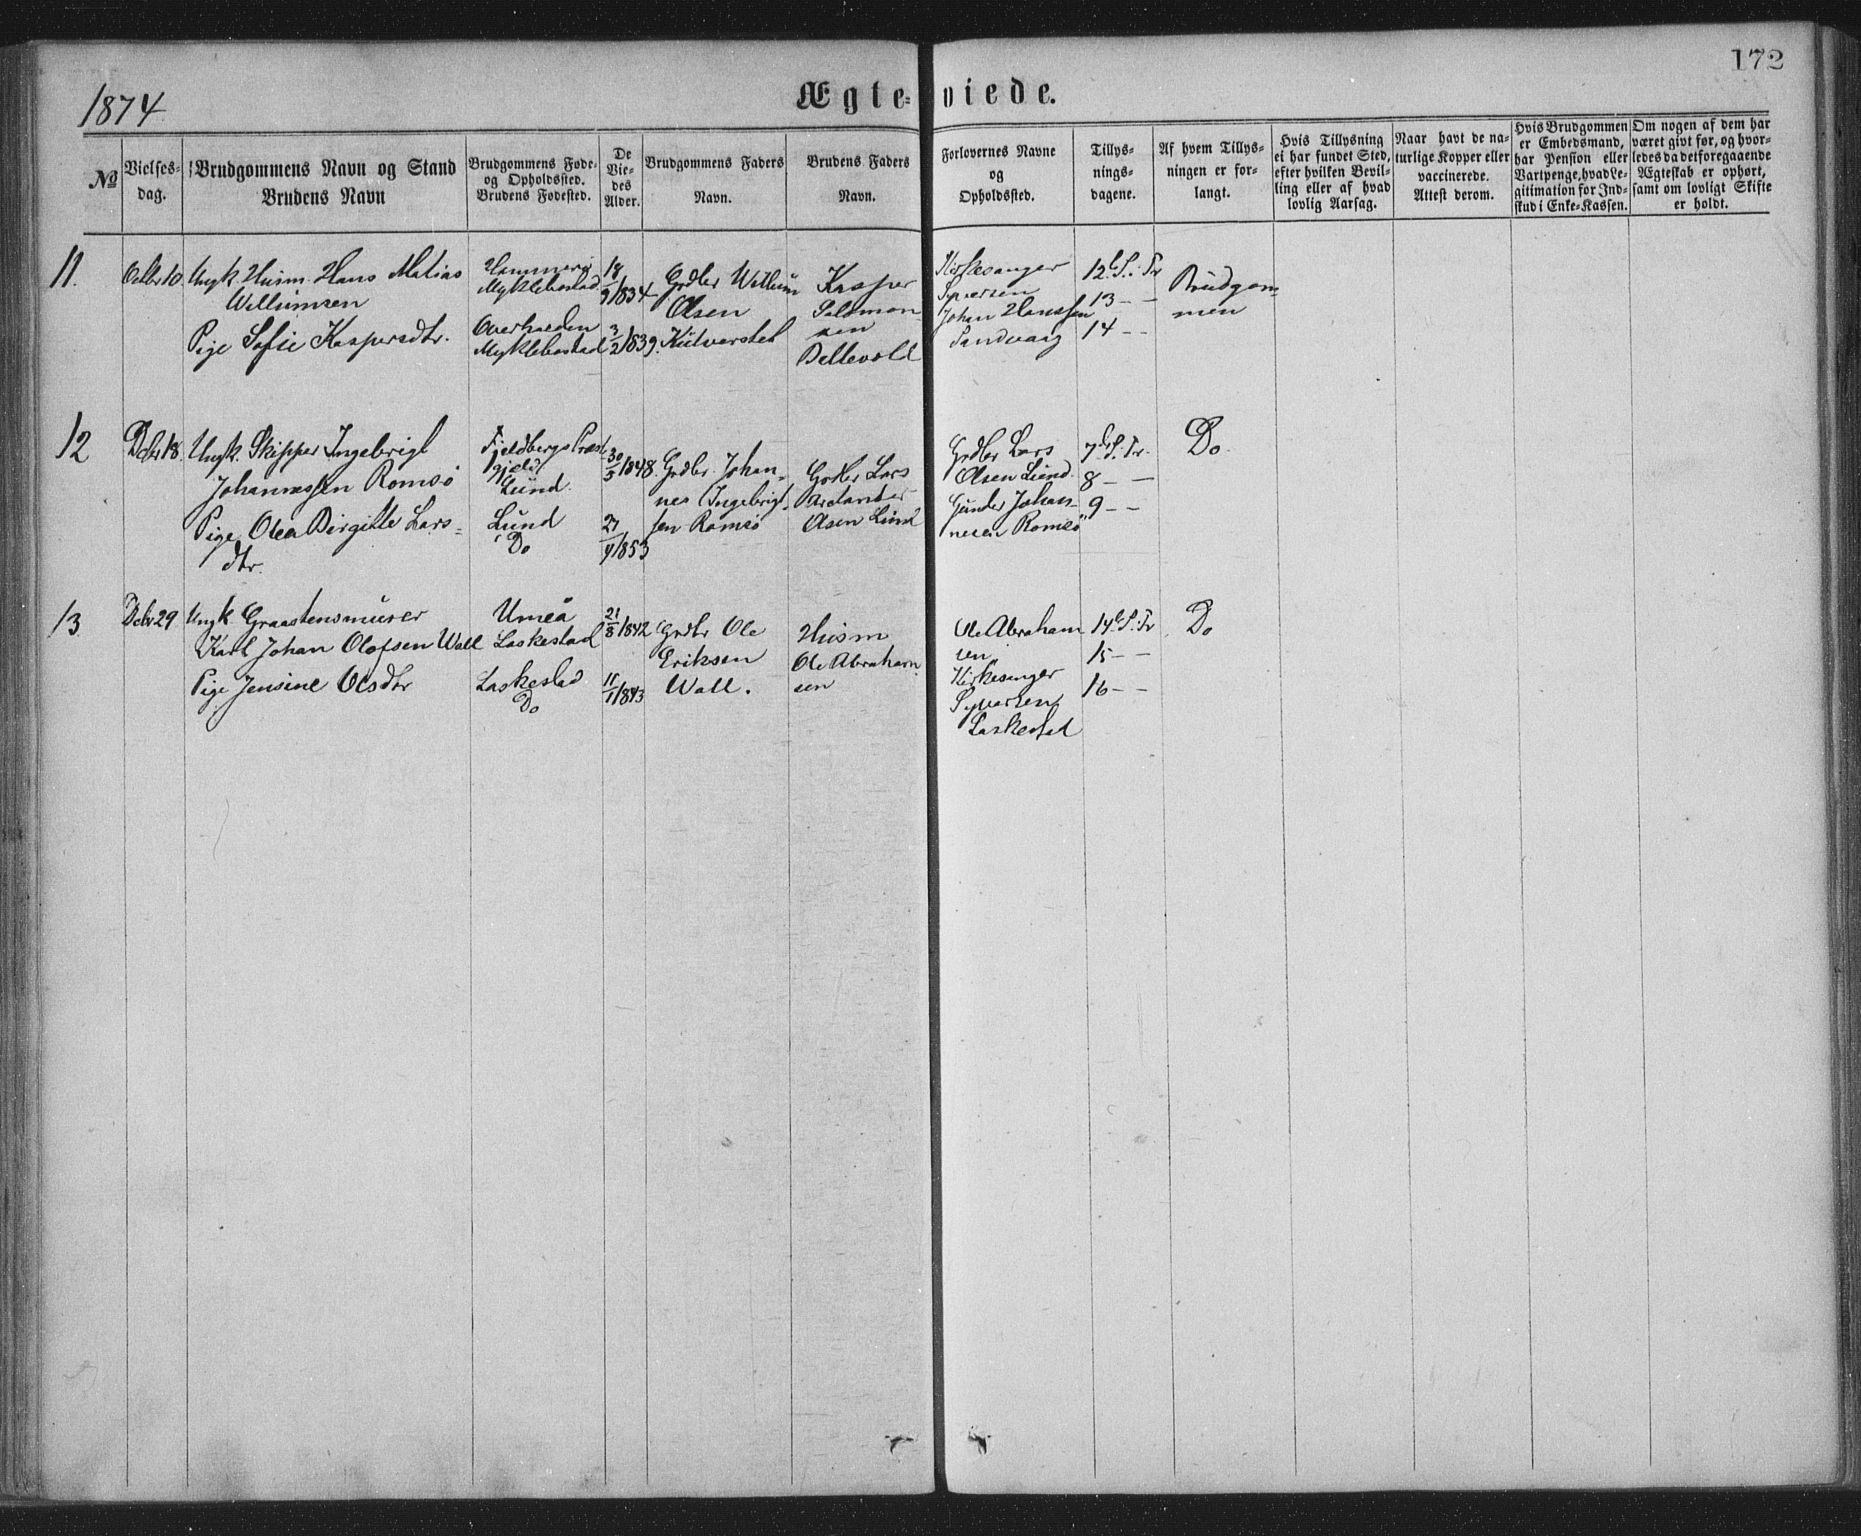 172
1874
Ægte-viede.
№
Vielses-
dag.
Brudgommens Navn og Stand
Brudens Navn
Brudgommens Føde-
og Opholdssted.
Brudens Fødested.
De
Vie-
des
Alder.
Brudgommens Faders
Navn.
Brudens Faders
Navn.
Forlovernes Navne
og
Opholdssted.
Tillys-
nings-
dagene.
Af hvem Tillys-
ningen er for-
langt.
Hvis Tillysning
ei har fundet Sted,
efter hvilken Bevil-
ling eller af hvad
lovlig Aarsag.
Naar havt de na-
turlige Kopper eller
vaccinerede.
Attest derom.
Hvis Brudgommen
er Embedsmand,
har Pension eller
Vartpenge, hvad Le-
gitimation for Ind-
skud i Enke-Kassen.
Om nogen af dem har
været givt før, og hvor-
ledes da det foregaaende
Ægteskab er ophørt,
samt om lovligt Skifte
er holdt.
11.
Octbr 10
Ungk. Husm. Hans Matias
Willumsen
Pige Sofie Kaspersdtr.
Hammerø
Myklebostad
Myklebostad
18/9 1834
3/2 1839.
Grdbr Willum
Olsen
Kasper
Salomon-
sen
Kirkesanger
Syversen
Johan Hanssen
12te S. i Tr
13 — —
14 — —
Brudgom-
men
12
Dcbr 18.
Ungk. Skipper Ingebrigt
Johannessen Romsö
Pige Olea Birgitte Lars-
dtr.
Fjeldbergs Præste-
gjeld.
Lund.
Lund
Do
30/5 1848.
27/9 1853
Grdbr. Johan-
nes Ingebrigt-
sen Romsö
Grdbr Lars
Olsen Lund
Grdbr Lars
Olsen Lund.
Gunder Johan-
nesen Romsö
7de S. i Tr.
8 — —
9 — —
Do.
13.
Dcbr 29
Ungk Graastensmurer
Karl Johan Olofsen Wall
Pige Jensine Olsdtr
Umeå
Laskestad
Laskestad
Do
21/8 1842
11/1 1843
Grdbr Ole
Eriksen
Wall.
Husm
Ole Abraham
sen
Ole Abraham
sen
Kirkesanger
Syversen
Laskestad
14de S. i Tr
15 — —
16 — —
Do